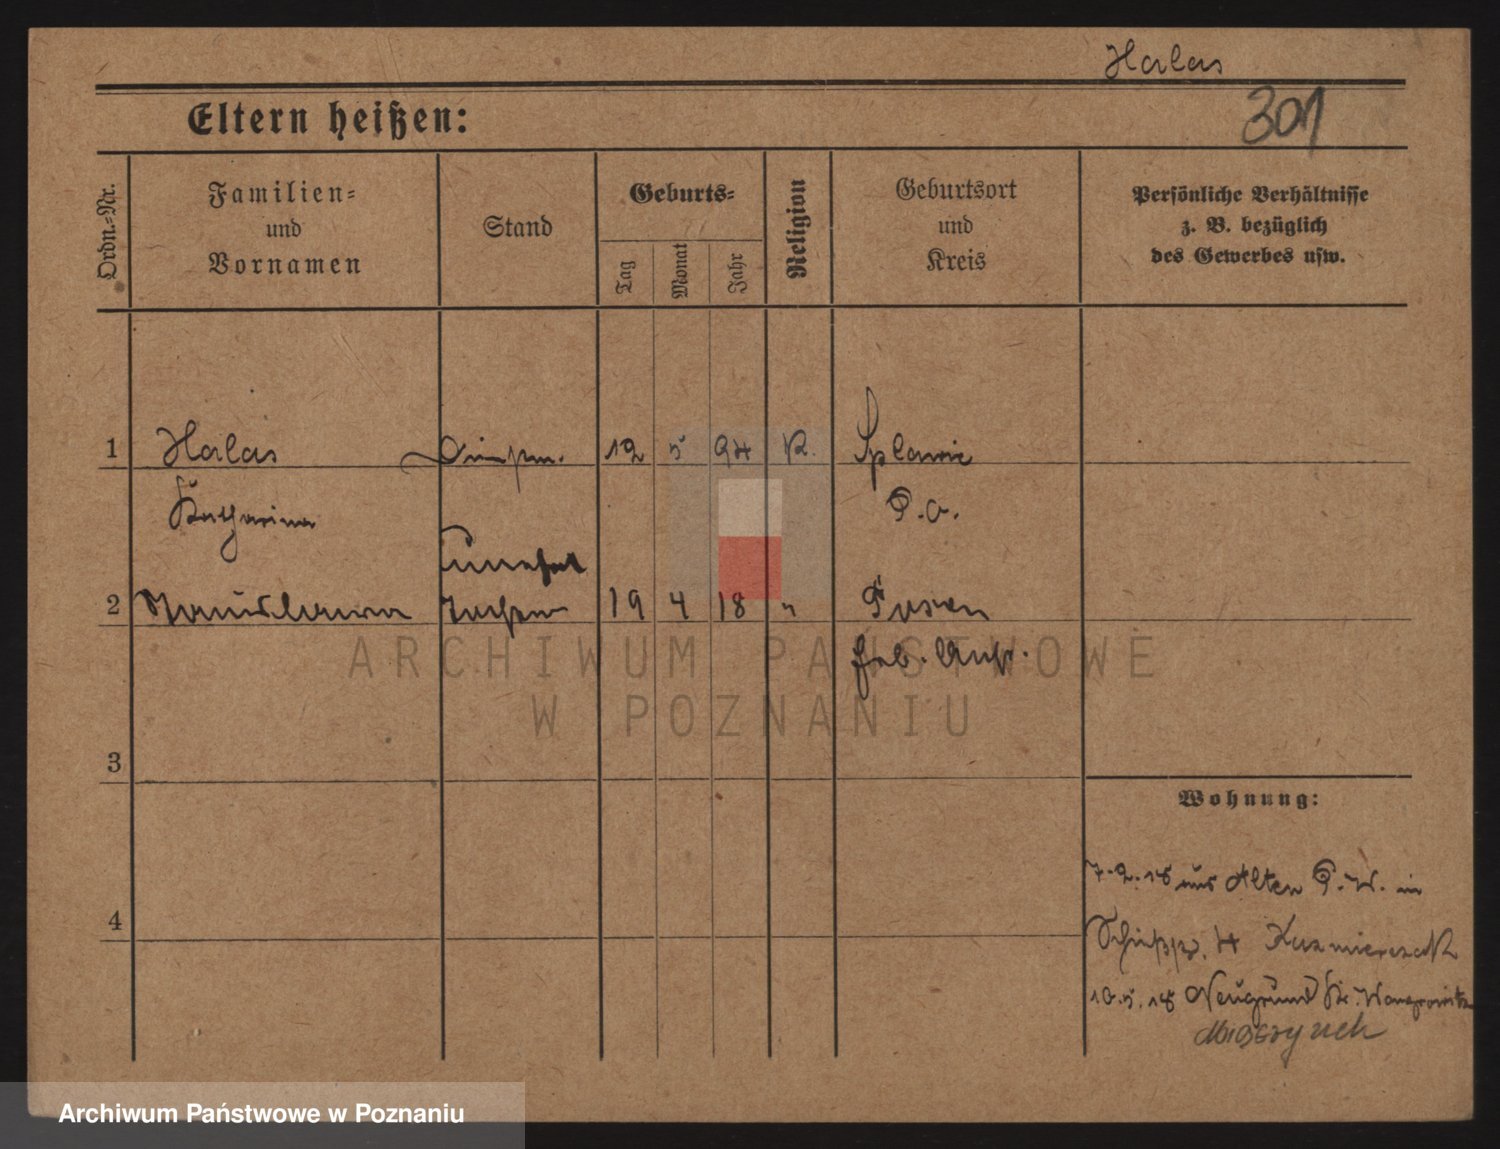 Halas
301
Eltern heißen:
Ordn.-Nr.
Familien-
und
Vornamen
Stand
Geburts-
Tag
Monat
Jahr
Religion
Geburtsort
und
Kreis
Persönliche Verhältnisse
z. B. bezüglich
des Gewerbes usw.
1 Halas 12 5 94 K. Splawie
Katharina P. O.
unehel
2 Stanislawa Tochter 19 4 18 " Posen
Heb. Anst.
ARCHIWUM PAŃSTWOWE
W POZNANIU
3
Wohnung:
7.2.18 aus Alten P. W. in
4
4 Kazmierczak
10.5.18 Neugrund Kr. Wongrowitz
Archiwum Państwowe w Poznaniu